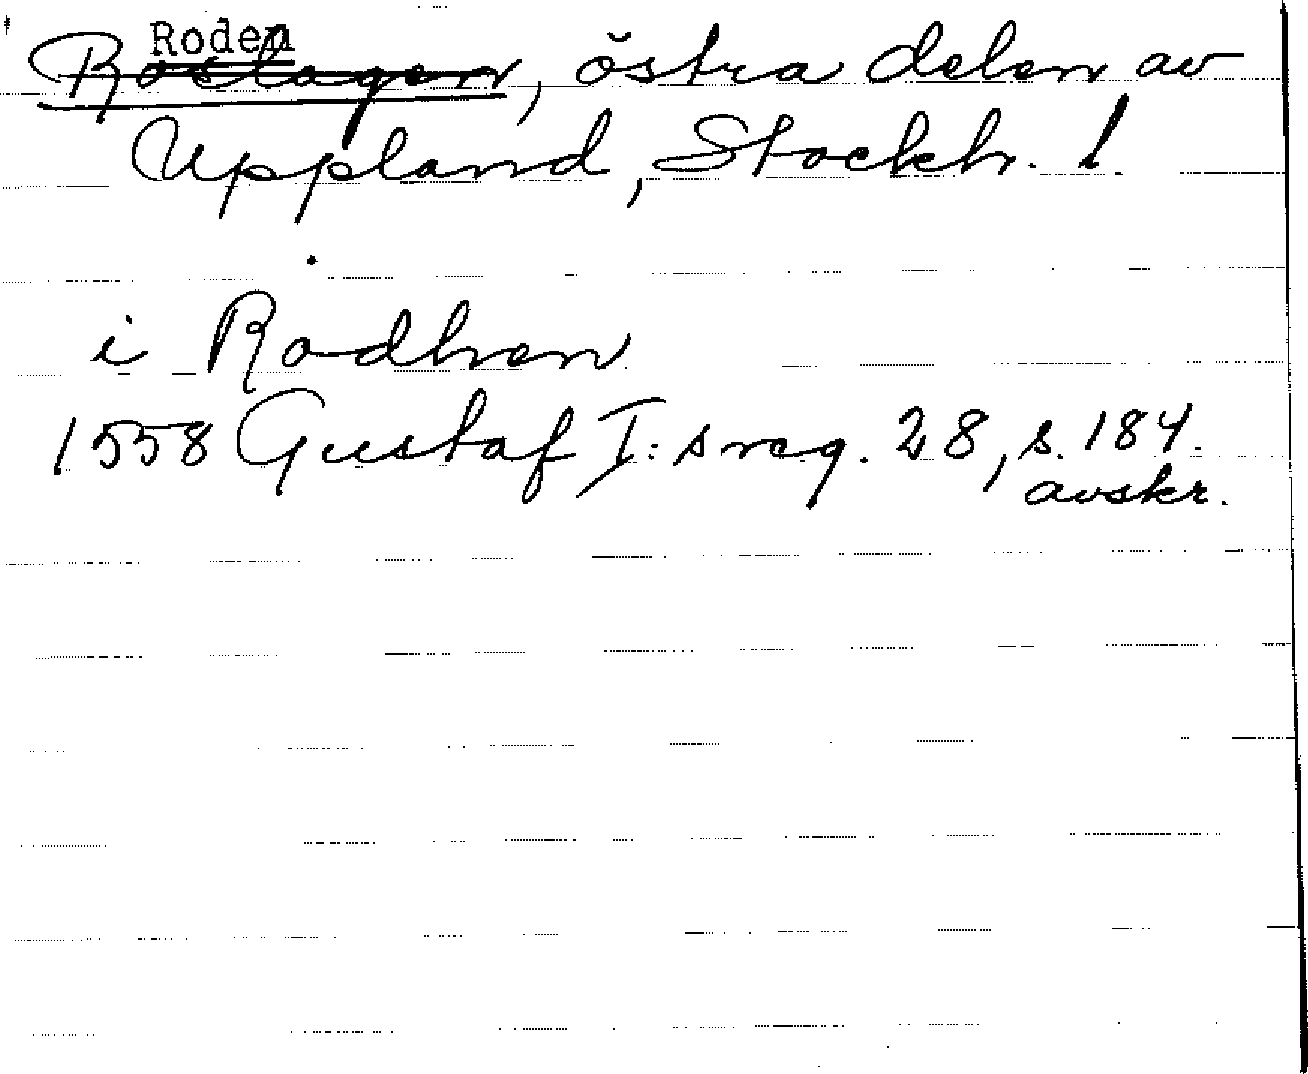 Roden
Roslagen, östra delen av
Uppland, Stockh. l.
i Rodhen
1558 Gustaf I:s reg. 28, s. 184.
avskr.